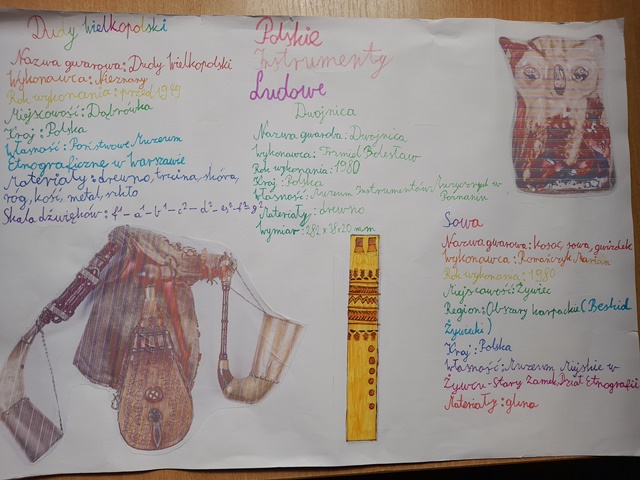 Dudy Wielkopolski
Nazwa gwarowa: Dudy Wielkopolski
Wykonawca: Nieznany
Rok wykonania: przed 1949
Miejscowość: Dąbrówka
Kraj: Polska
Własność: Państwowe Muzeum
Etnograficzne w Warszawie
Materiały: drewno, trzcina, skóra,
róg, kość, metal, szkło
Skala dźwięków: f¹ - a¹ - b¹ - c² - d² - es² - f² g²
Polskie
Instrumenty
Ludowe
Dwojnica
Nazwa gwarda: Dwojnica
Wykonawca: Bolesław
Rok wykonania: 1980
Kraj: Polska
Własność: Muzeum Instrumentów Muzycznych w
Poznaniu
Materiały: drewno
Wymiar: 282 x 38 x 20 mm
Sowa
Nazwa gwarowa: kosoc, sowa, gwizdek
Wykonawca: Romańczyk Marian
Rok wykonania: 1980
Miejscowość: Żywiec
Region: Obszary karpackie (Beskid
Żywiecki)
Kraj: Polska
Własność: Muzeum Miejskie w
Żywcu - Stary Zamek, Dział Etnografii
Materiały: glina